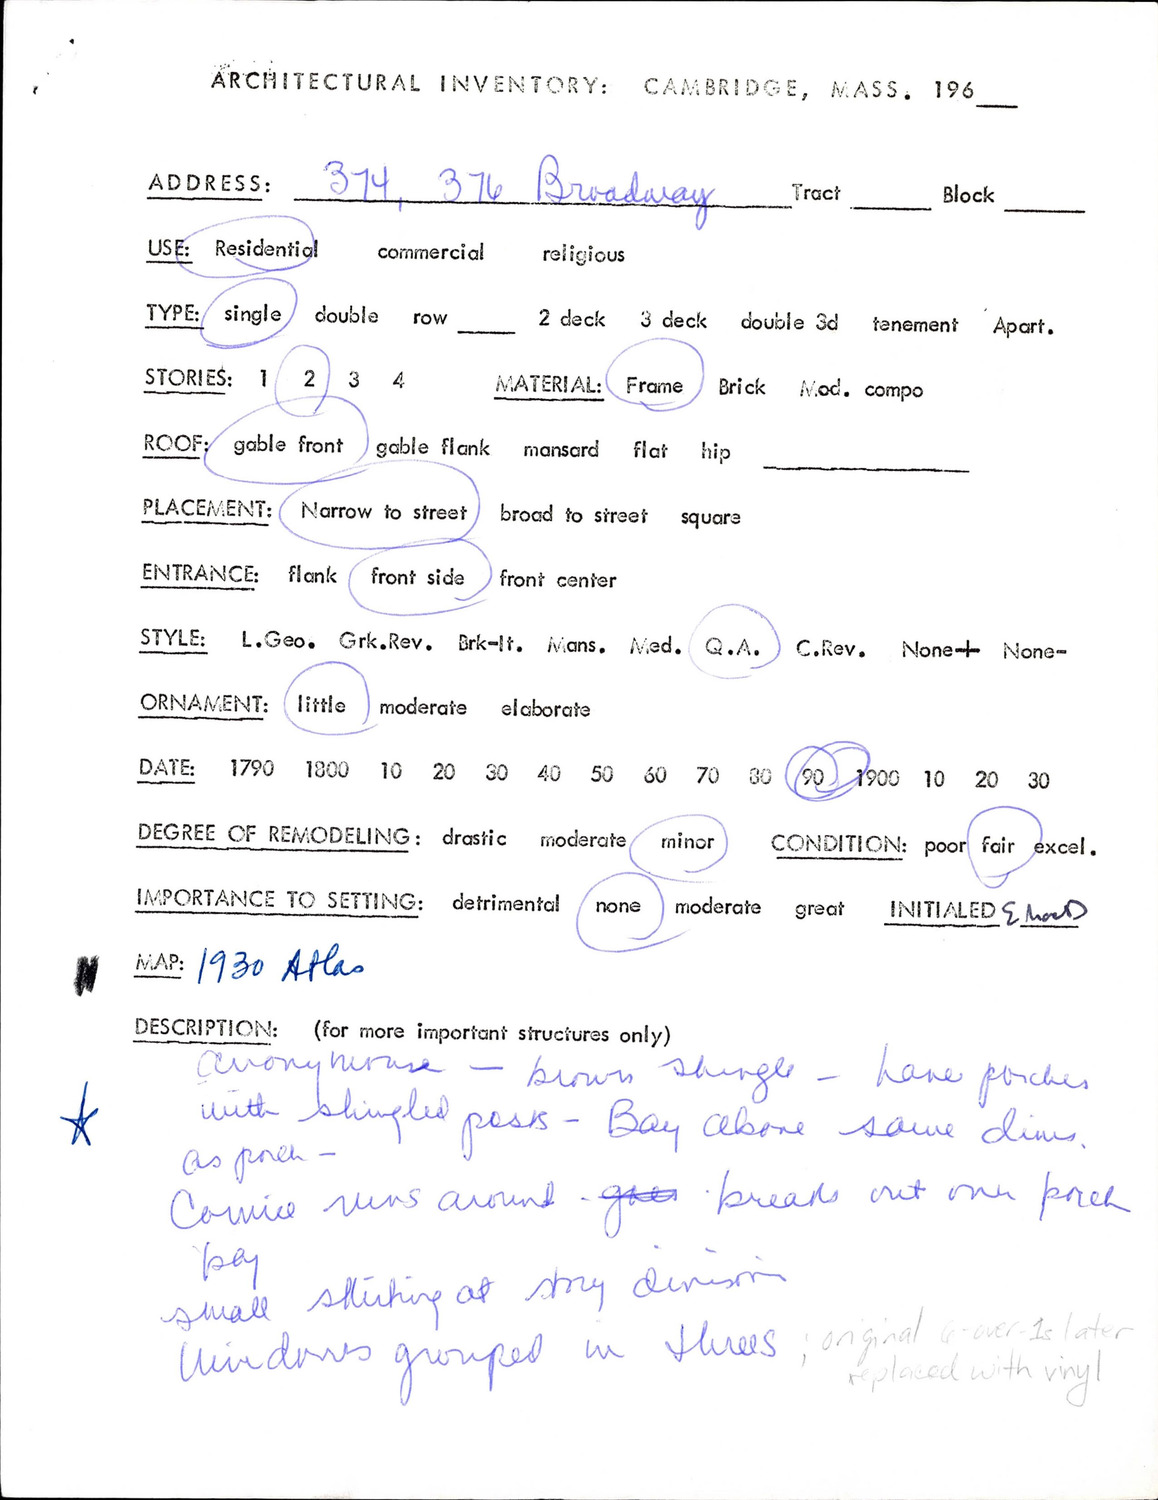 ARCHITECTURAL INVENTORY: CAMBRIDGE, MASS. 196___
ADDRESS: 374, 376 Broadway Tract ______ Block ______
USE: Residential commercial religious
TYPE: single double row ____ 2 deck 3 deck double 3d tenement Apart.
STORIES: 1 2 3 4 MATERIAL: Frame Brick Mod. compo
ROOF: gable front gable flank mansard flat hip ______________
PLACEMENT: Narrow to street broad to street square
ENTRANCE: flank front side front center
STYLE: L.Geo. Grk.Rev. Brk-It. Mans. Med. Q.A. C.Rev. None+ None-
ORNAMENT: little moderate elaborate
DATE: 1790 1800 10 20 30 40 50 60 70 80 90 1900 10 20 30
DEGREE OF REMODELING: drastic moderate minor CONDITION: poor fair excel.
IMPORTANCE TO SETTING: detrimental none moderate great INITIALED
MAP: 1930 Atlas
DESCRIPTION: (for more important structures only)
anonymous — brown shingle – have porches
with shingled posts – Bay above same dims.
as porch –
Cornice runs around - goes breaks out over porch
bay
small skirting at story division
Windows grouped in threes ; original 6-over-1s later
replaced with vinyl